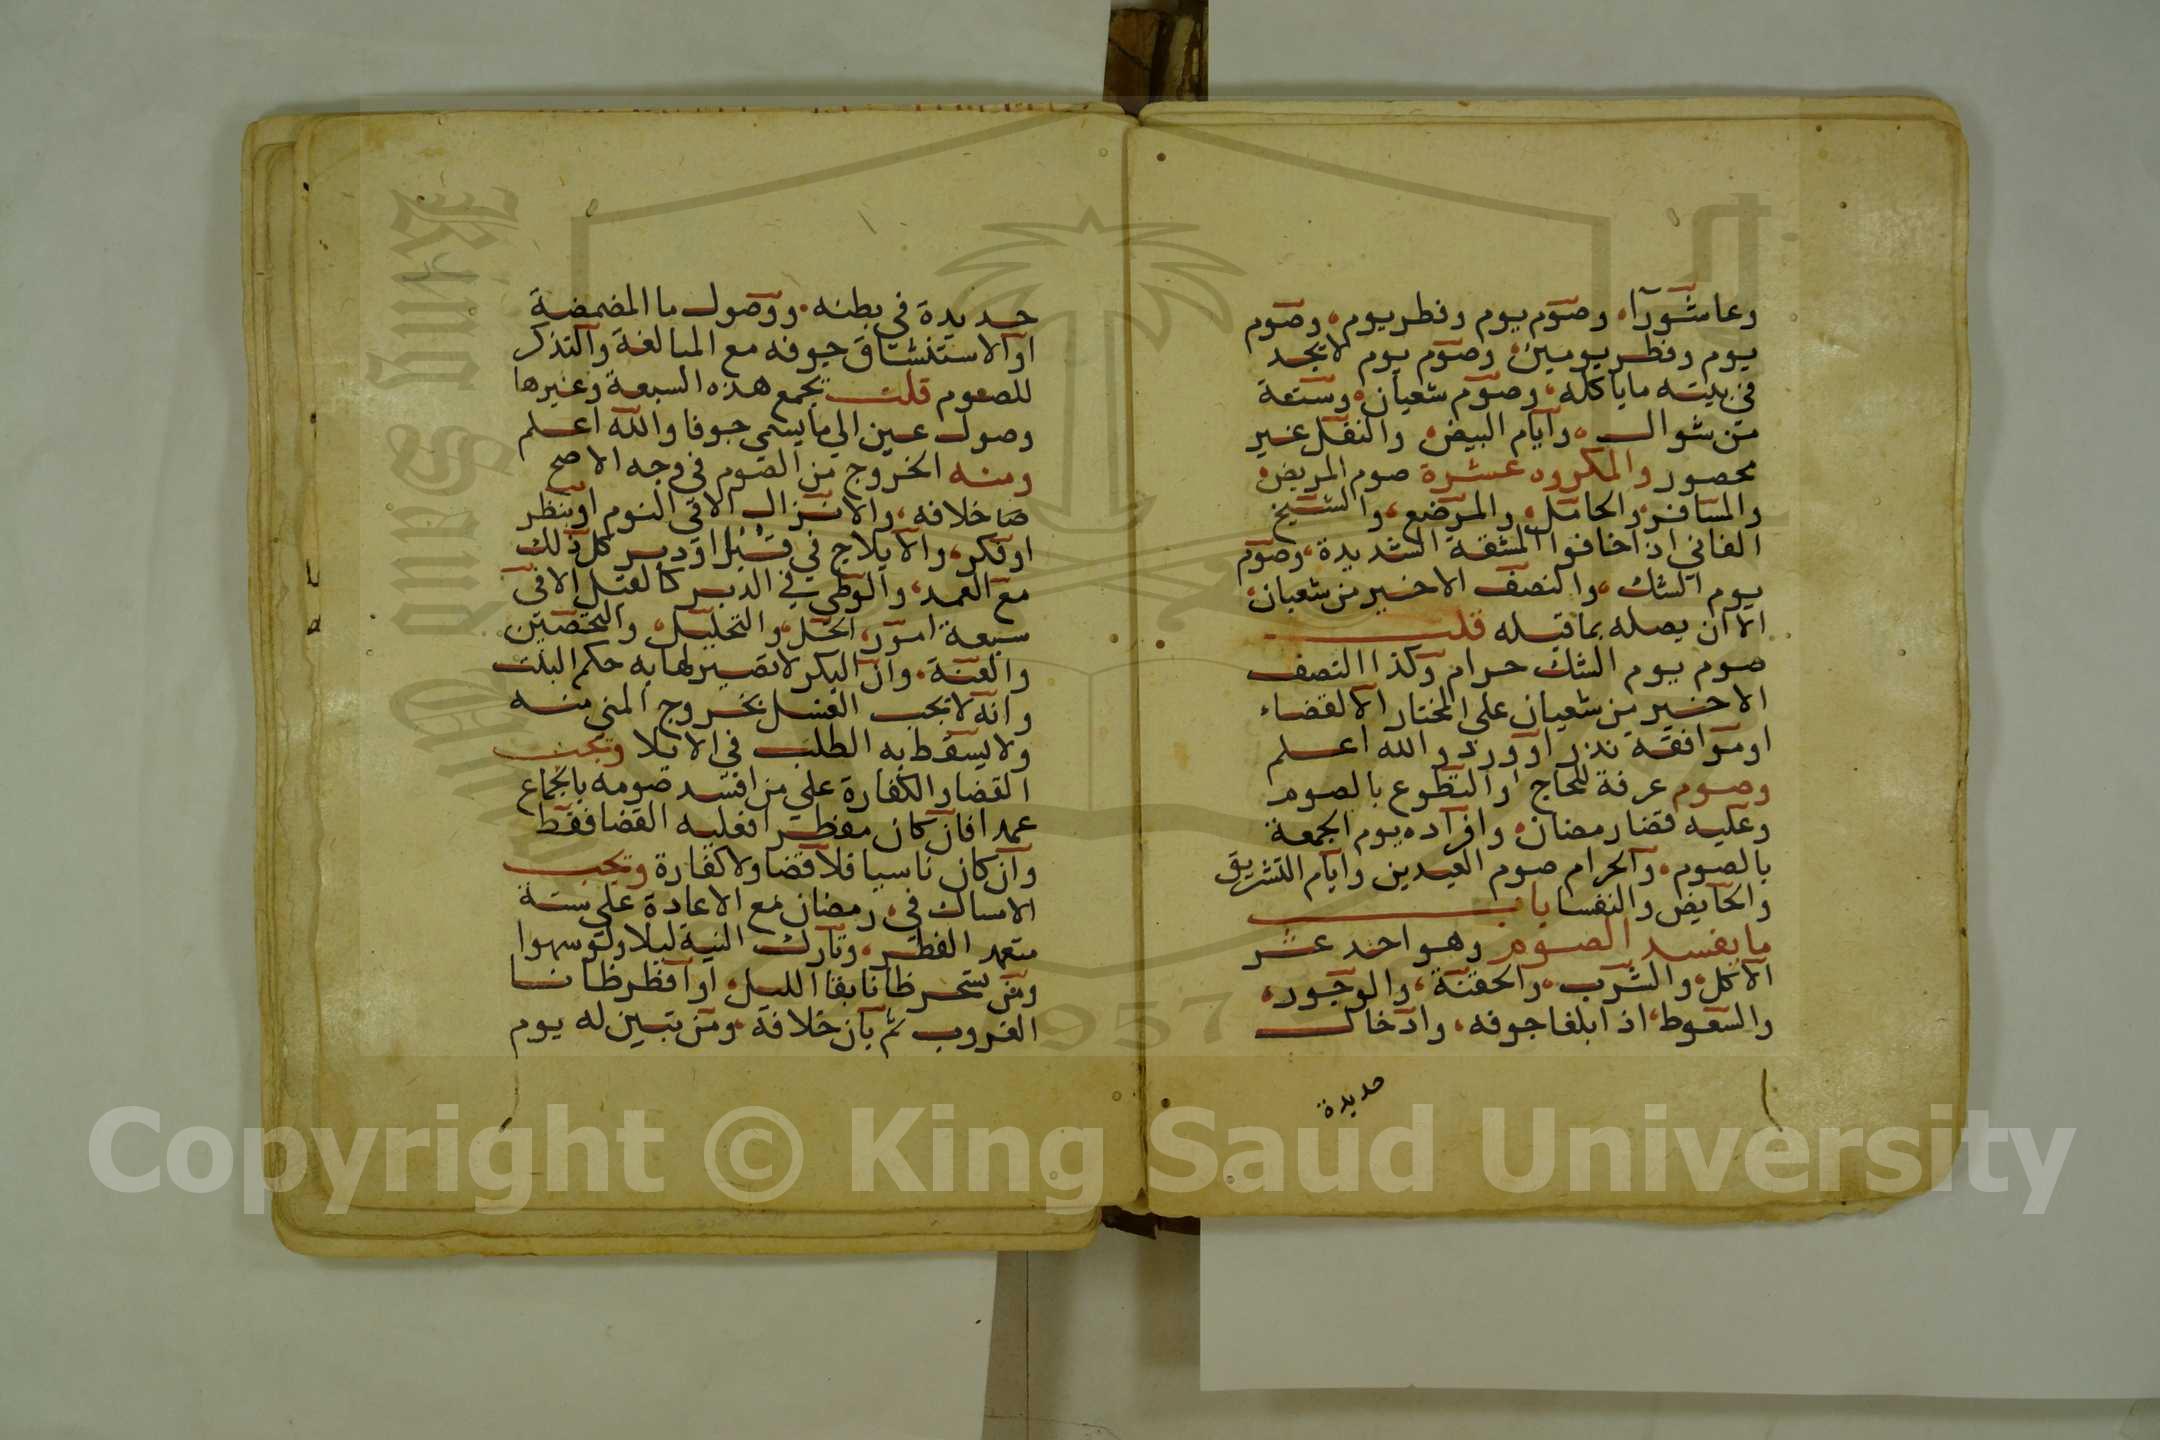 وعاشورآء، وصوم يوم وفطر يوم، وصوم
يوم وفطر يومين، وصوم يوم لا يجد
في بيته ما يأكله، وصوم شعبان، وستة
من شوال، وأيام البيض، والنفل غير
محصور والمكروه عشرة صوم المريض
والمسافر، والحامل، والمرضع، والشيخ
الفاني اذا خافوا المشقة الشديدة، وصوم
يوم الشك، والنصف الاخير من شعبان،
الا ان يصله بما قبله قلت
صوم يوم الشك حرام وكذا النصف
الاخير من شعبان على المختار الا لقضاء
او موافقة نذر او ورد والله اعلم
وصوم عرفة للحاج والتطوع بالصوم
وعليه قضا رمضان، وافراده يوم الجمعة
بالصوم، والحرام صوم العيدين وايام التشريق
والحايض والنفسا باب
ما يفسد الصوم وهو احد عشر
الاكل، والشرب، والحقنة، والوجور،
والسعوط، اذا بلغا جوفه، وادخال
حديدة
حديدة في بطنه، ووصول ما المضمضة
او الاستنشاق جوفه مع المبالغة والتذكر
للصوم قلت يجمع هذه السبعة وغيرها
وصول عين الى ما يسمى جوفا والله اعلم
ومنه الخروج من الصوم في وجه الاصح
خلافه، والانزال الا في النوم او بنظر
او فكر، والايلاج في قبل او دبر كل ذلك
مع العمد، والوطي في الدبر كالقبل الا في
سبعة امور، الحل، والتحليل، والتحصين
والعنة، وان البكر لا تصير لها به حكم الثيب
وانه لا يجب الغسل بخروج المني منه
ولا يسقط به الطلب في الايلا وتجب
القضا والكفارة على من افسد صومه بالجماع
عمدا فان كان مفطرا فعليه القضا فقط
وان كان ناسيا فلا قضا ولا كفارة وتجب
الامساك في، رمضان مع الاعادة على ستة
متعمد الفطر، وتارك النية ليلا ولو سهوا
ومن تسحر ظانا بقا الليل، او افطر ظانا
الغروب ثم بان خلافه، ومن تبين له يوم
Copyright © King Saud University
King Saud University
1957